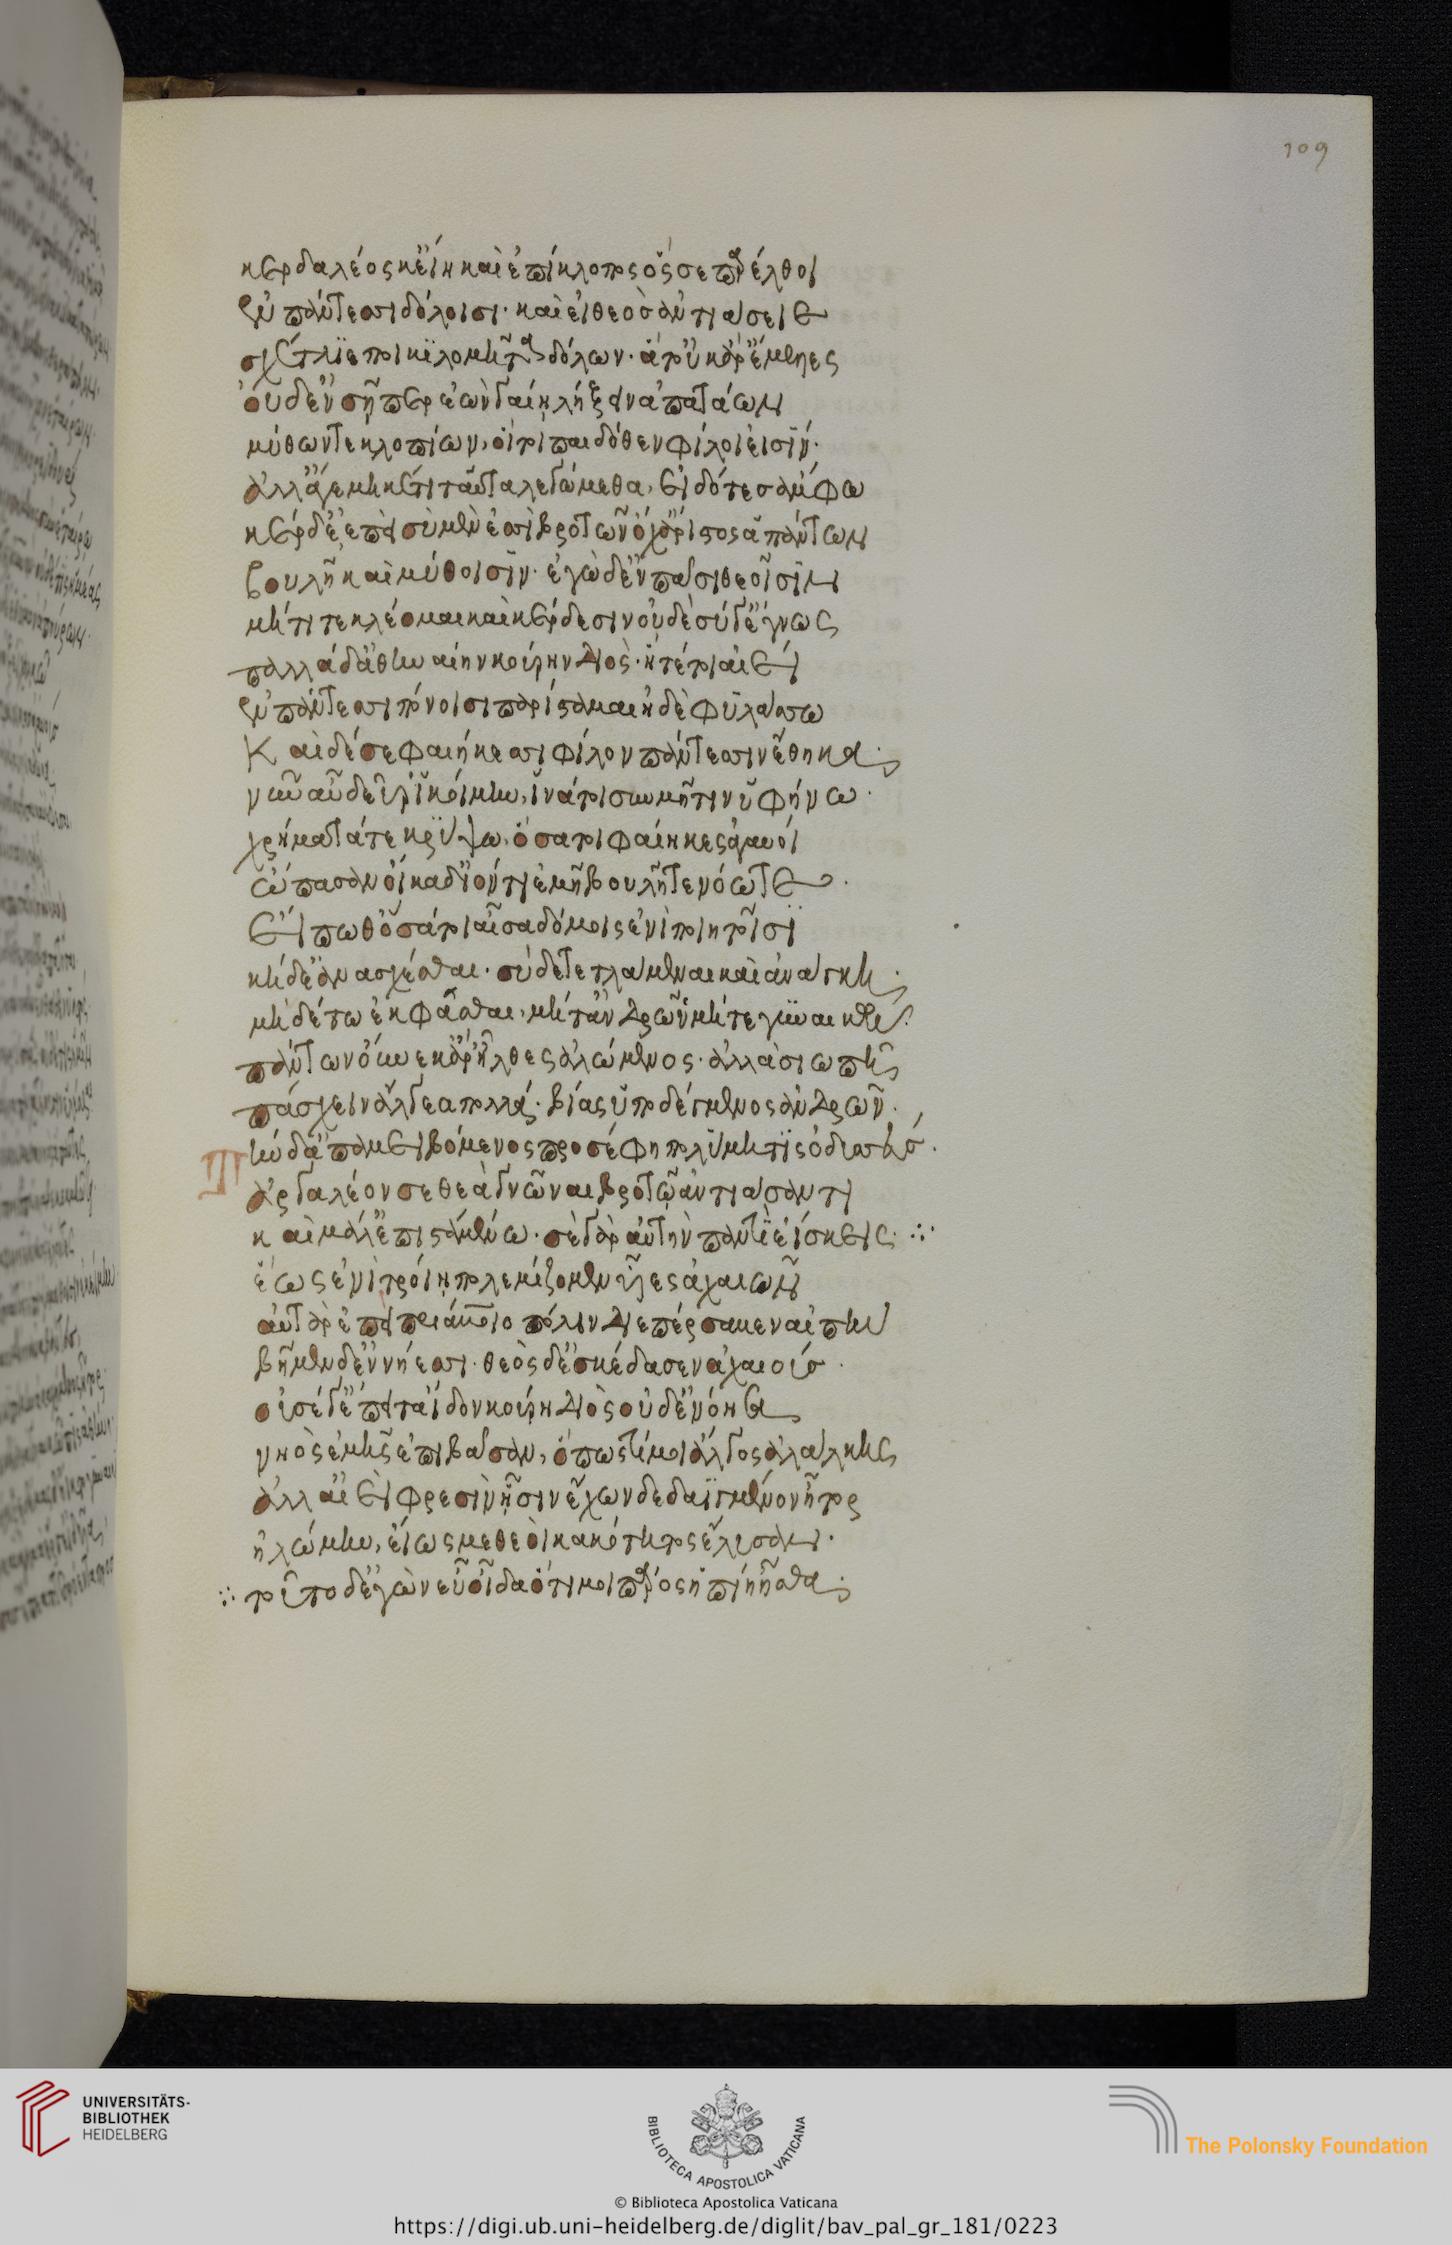 109
κερδαλέος κ' εἴη καὶ ἐπίκλοπος ὅς σε παρέλθοι
ἐν πάντεσσι δόλοισι· καὶ εἰ θεὸς ἀντιάσειε
σχέτλιε ποικιλομῆτα δόλων· ἆτ' οὐκ ἄρ' ἔμελλες
οὐδ' ἐν σῆ περ ἐὼν γαίη λήξειν ἀπατάων
μύθων τε κλοπίων, οἵ τοι παιδόθεν φίλοι εἰσίν·
ἀλλ' ἄγε μηκέτι ταῦτα λεγώμεθα, εἰδότες ἄμφω
κέρδε' ἐπεὶ σὺ μὲν ἐσσὶ βροτῶν ὄχ' ἄριστος ἁπάντων
βουλῆ καὶ μύθοισιν· ἐγὼ δ' ἐν πᾶσι θεοῖσιν
μήτι τε κλέομαι καὶ κέρδεσιν οὐδὲ σύ γ' ἔγνως
παλλάδ' ἀθηναίην κούρην Διὸς· ἥ τέ τοι αἰεί
ἐν πάντεσσι πόνοισι παρίσταμαι ἠδὲ φυλάσσω
Καὶ δέ σε φαιήκεσσι φίλον πάντεσσιν ἔθηκα·
νῦν αὖ δεῦρ' ἱκόμην, ἵνα τοι σὺν μῆτιν ὑφήνω·
χρήματά τε κρύψω, ὅσα τοι φαίηκες ἀγαυοί
ὤπασαν οἴκαδ' ἰόντι ἐμῆ βουλῆ τε νόω τε·
εἴπω θ' ὅσά τοι αἶσα δόμοις ἐνὶ ποιητοῖσι
κήδε' ἀνασχέσθαι· σὺ δὲ τετλάμεναι καὶ ἀνάγκη·
μὴδέ τω ἐκφάσθαι, μήτ' ἀνδρῶν μήτε γυναικῶν·
πάντων οὕνεκ' ἄρ' ἦλθες ἀλώμενος· ἀλλὰ σιωπῆ
πάσχειν ἄλγεα πολλά· βίας ὑποδέγμενος ἀνδρῶν·
Τὴν δ' ἀπαμειβόμενος προσέφη πολύμητις ὀδυσσεύς·
ἀργαλέον σε θεὰ γνῶναι βροτῶ ἀντιάσαντι
καὶ μάλ' ἐπισταμένω· σὲ γὰρ αὐτὴν παντὶ ἐίσκεις ∴
ἕως ἐνὶ τροίη πολεμίζομεν υἷες ἀχαιῶν
αὐτὰρ ἐπεὶ πριάμοιο πόλιν Διεπέρσαμεν αἰπήν
βῆμεν δ' ἐν νήεσσι· θεὸς δ' ἐσκέδασεν ἀχαιούς·
οὔ σέ γ' ἔπειτα ἴδον κούρη Διὸς οὐδ' ἐνόησα
νηὸς ἐμῆς ἐπιβᾶσαν, ὅπως τί μοι ἄλγος ἀλάλκης
ἀλλ' αἰεὶ φρεσὶν ἧσιν ἔχων δεδαϊγμένον ἦτορ
ἠλώμην, εἵως με θεοὶ κακότητος ἔλυσαν·
∴ τοῦτο δ' ἐγὼν εὖ οἶδα ὅτι μοι πάρος ἠπίη ἦσθα·
UNIVERSITÄTS-
BIBLIOTHEK
HEIDELBERG
BIBLIOTECA APOSTOLICA VATICANA
The Polonsky Foundation
© Biblioteca Apostolica Vaticana
https://digi.ub.uni-heidelberg.de/diglit/bav_pal_gr_181/0223